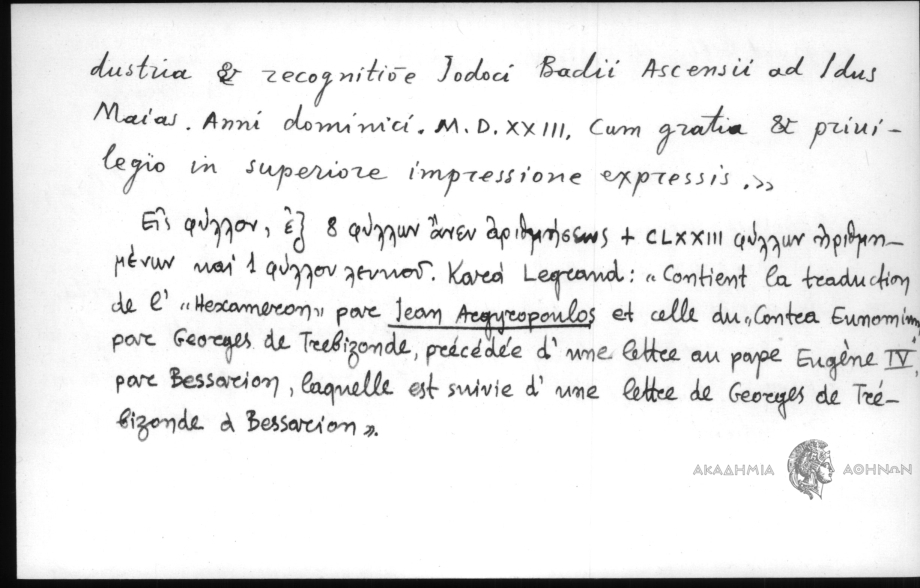 dustria & recognitiōe Jodoci Badii Ascensii ad Idus
Maias. Anni dominici. M.D.XXIII. Cum gratia & priui-
legio in superiore impressione expressis.»
Εἰς φύλλον, ἐξ 8 φύλλων ἄνευ ἀριθμήσεως + CLXXIII φύλλων ἠριθμη-
μένων καί 1 φύλλου λευκοῦ. Κατά Legrand: «Contient la traduction
de l' «Hexameron» par Jean Argyropoulos et celle du «Contra Eunomium»
par Georges de Trebizonde, précédée d' une lettre au pape Eugène IV,
par Bessarion, laquelle est suivie d' une lettre de Georges de Tré-
bizonde à Bessarion».
ΑΚΑΔΗΜΙΑ ΑΘΗΝΩΝ